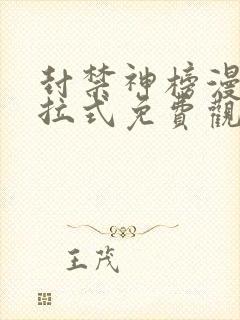 封禁神榜漫
拉式免費觀
王茂